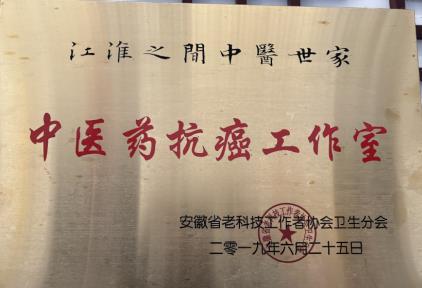 江淮之間中醫世家
中医药抗癌工作室
安徽省老科技工作者协会卫生分会
二零一九年六月二十五日